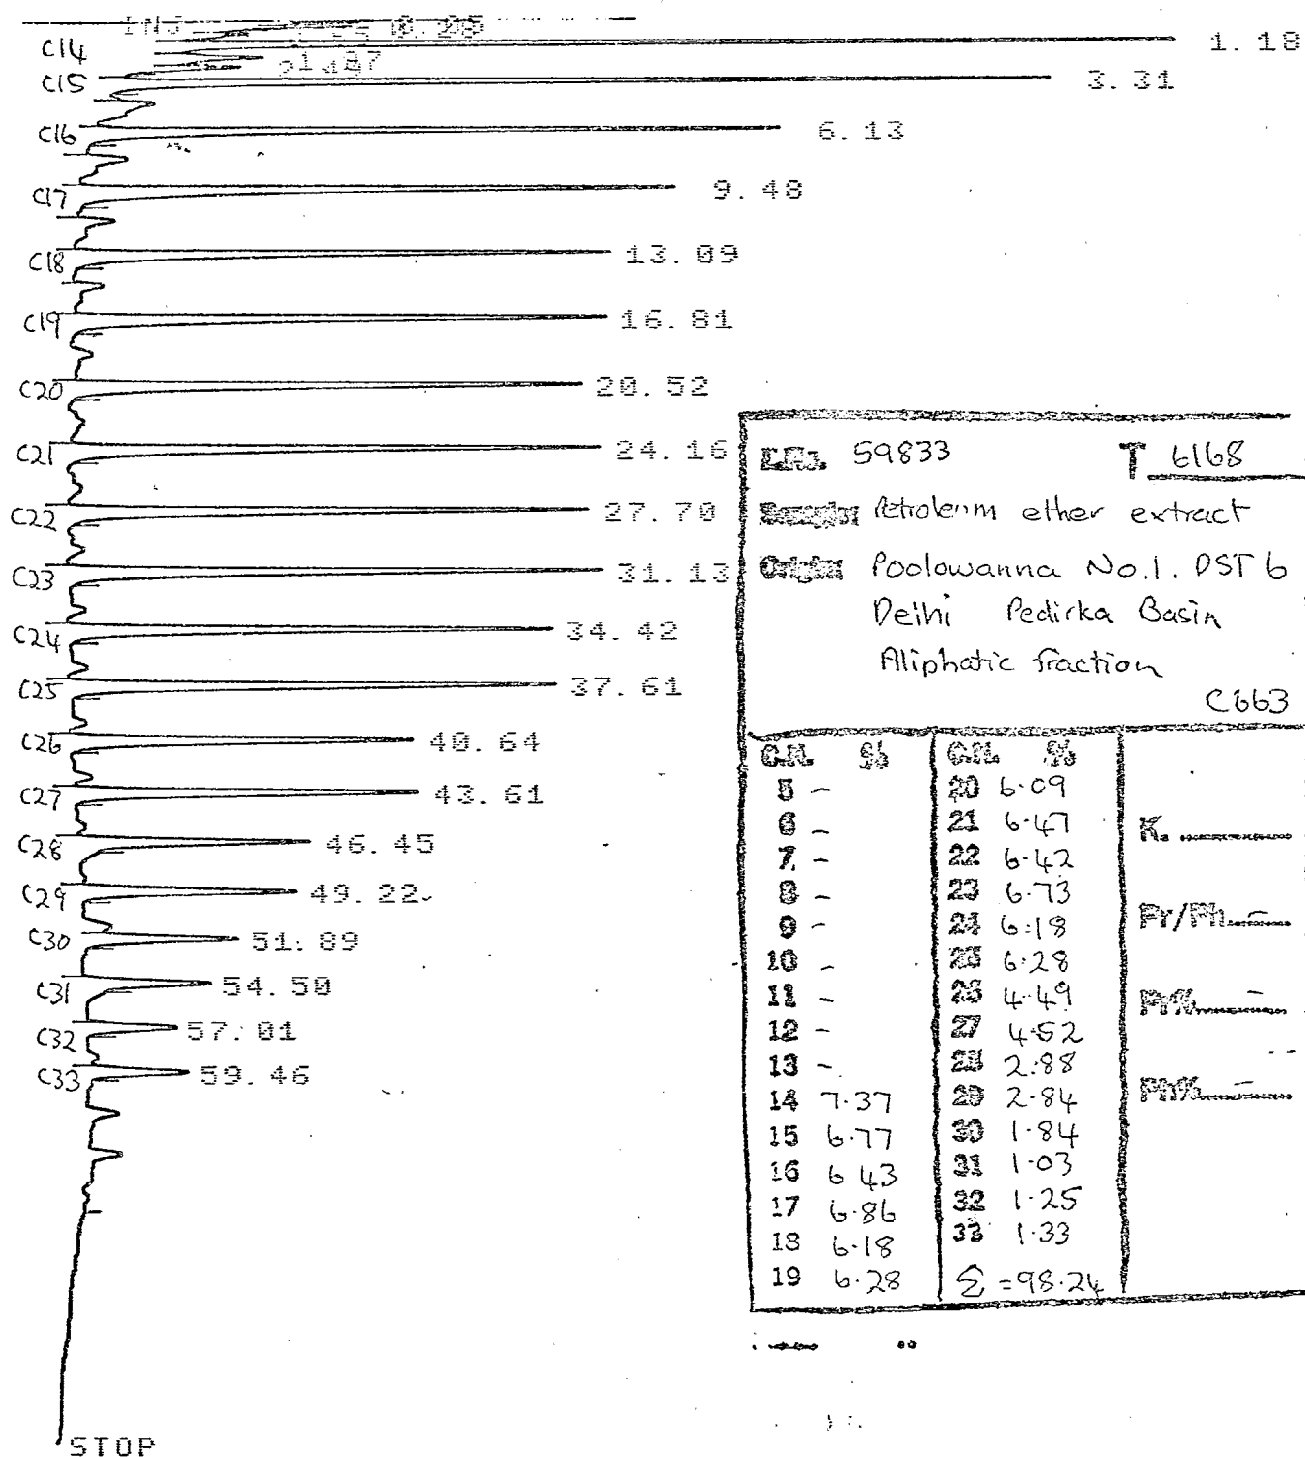 INJ
C14
1.18
C15
3.31
C16 6.13
C17 9.48
C18 13.09
C19 16.81
C20 20.52
C21 24.16
C22 27.70
C23 31.13
C24 34.42
C25 37.61
C26 40.64
C27 43.61
C28 46.45
C29 49.22
C30 51.89
C31 54.50
C32 57.01
C33 59.46
STOP
59833 T 6168
Petroleum ether extract
Origin Poolowanna No.1. DST 6
Delhi Pedirka Basin
Aliphatic fraction
C663
C.N. % C.N. %
5 - 20 6.09
6 - 21 6.47 K.
7 - 22 6.42
8 - 23 6.73
9 - 24 6.18 Pr/Ph -
10 - 25 6.28
11 - 26 4.49 Pr% -
12 - 27 4.52
13 - 28 2.88
14 7.37 29 2.84 Ph% -
15 6.77 30 1.84
16 6 43 31 1.03
17 6.86 32 1.25
18 6.18 33 1.33
19 6.28 Σ = 98.24